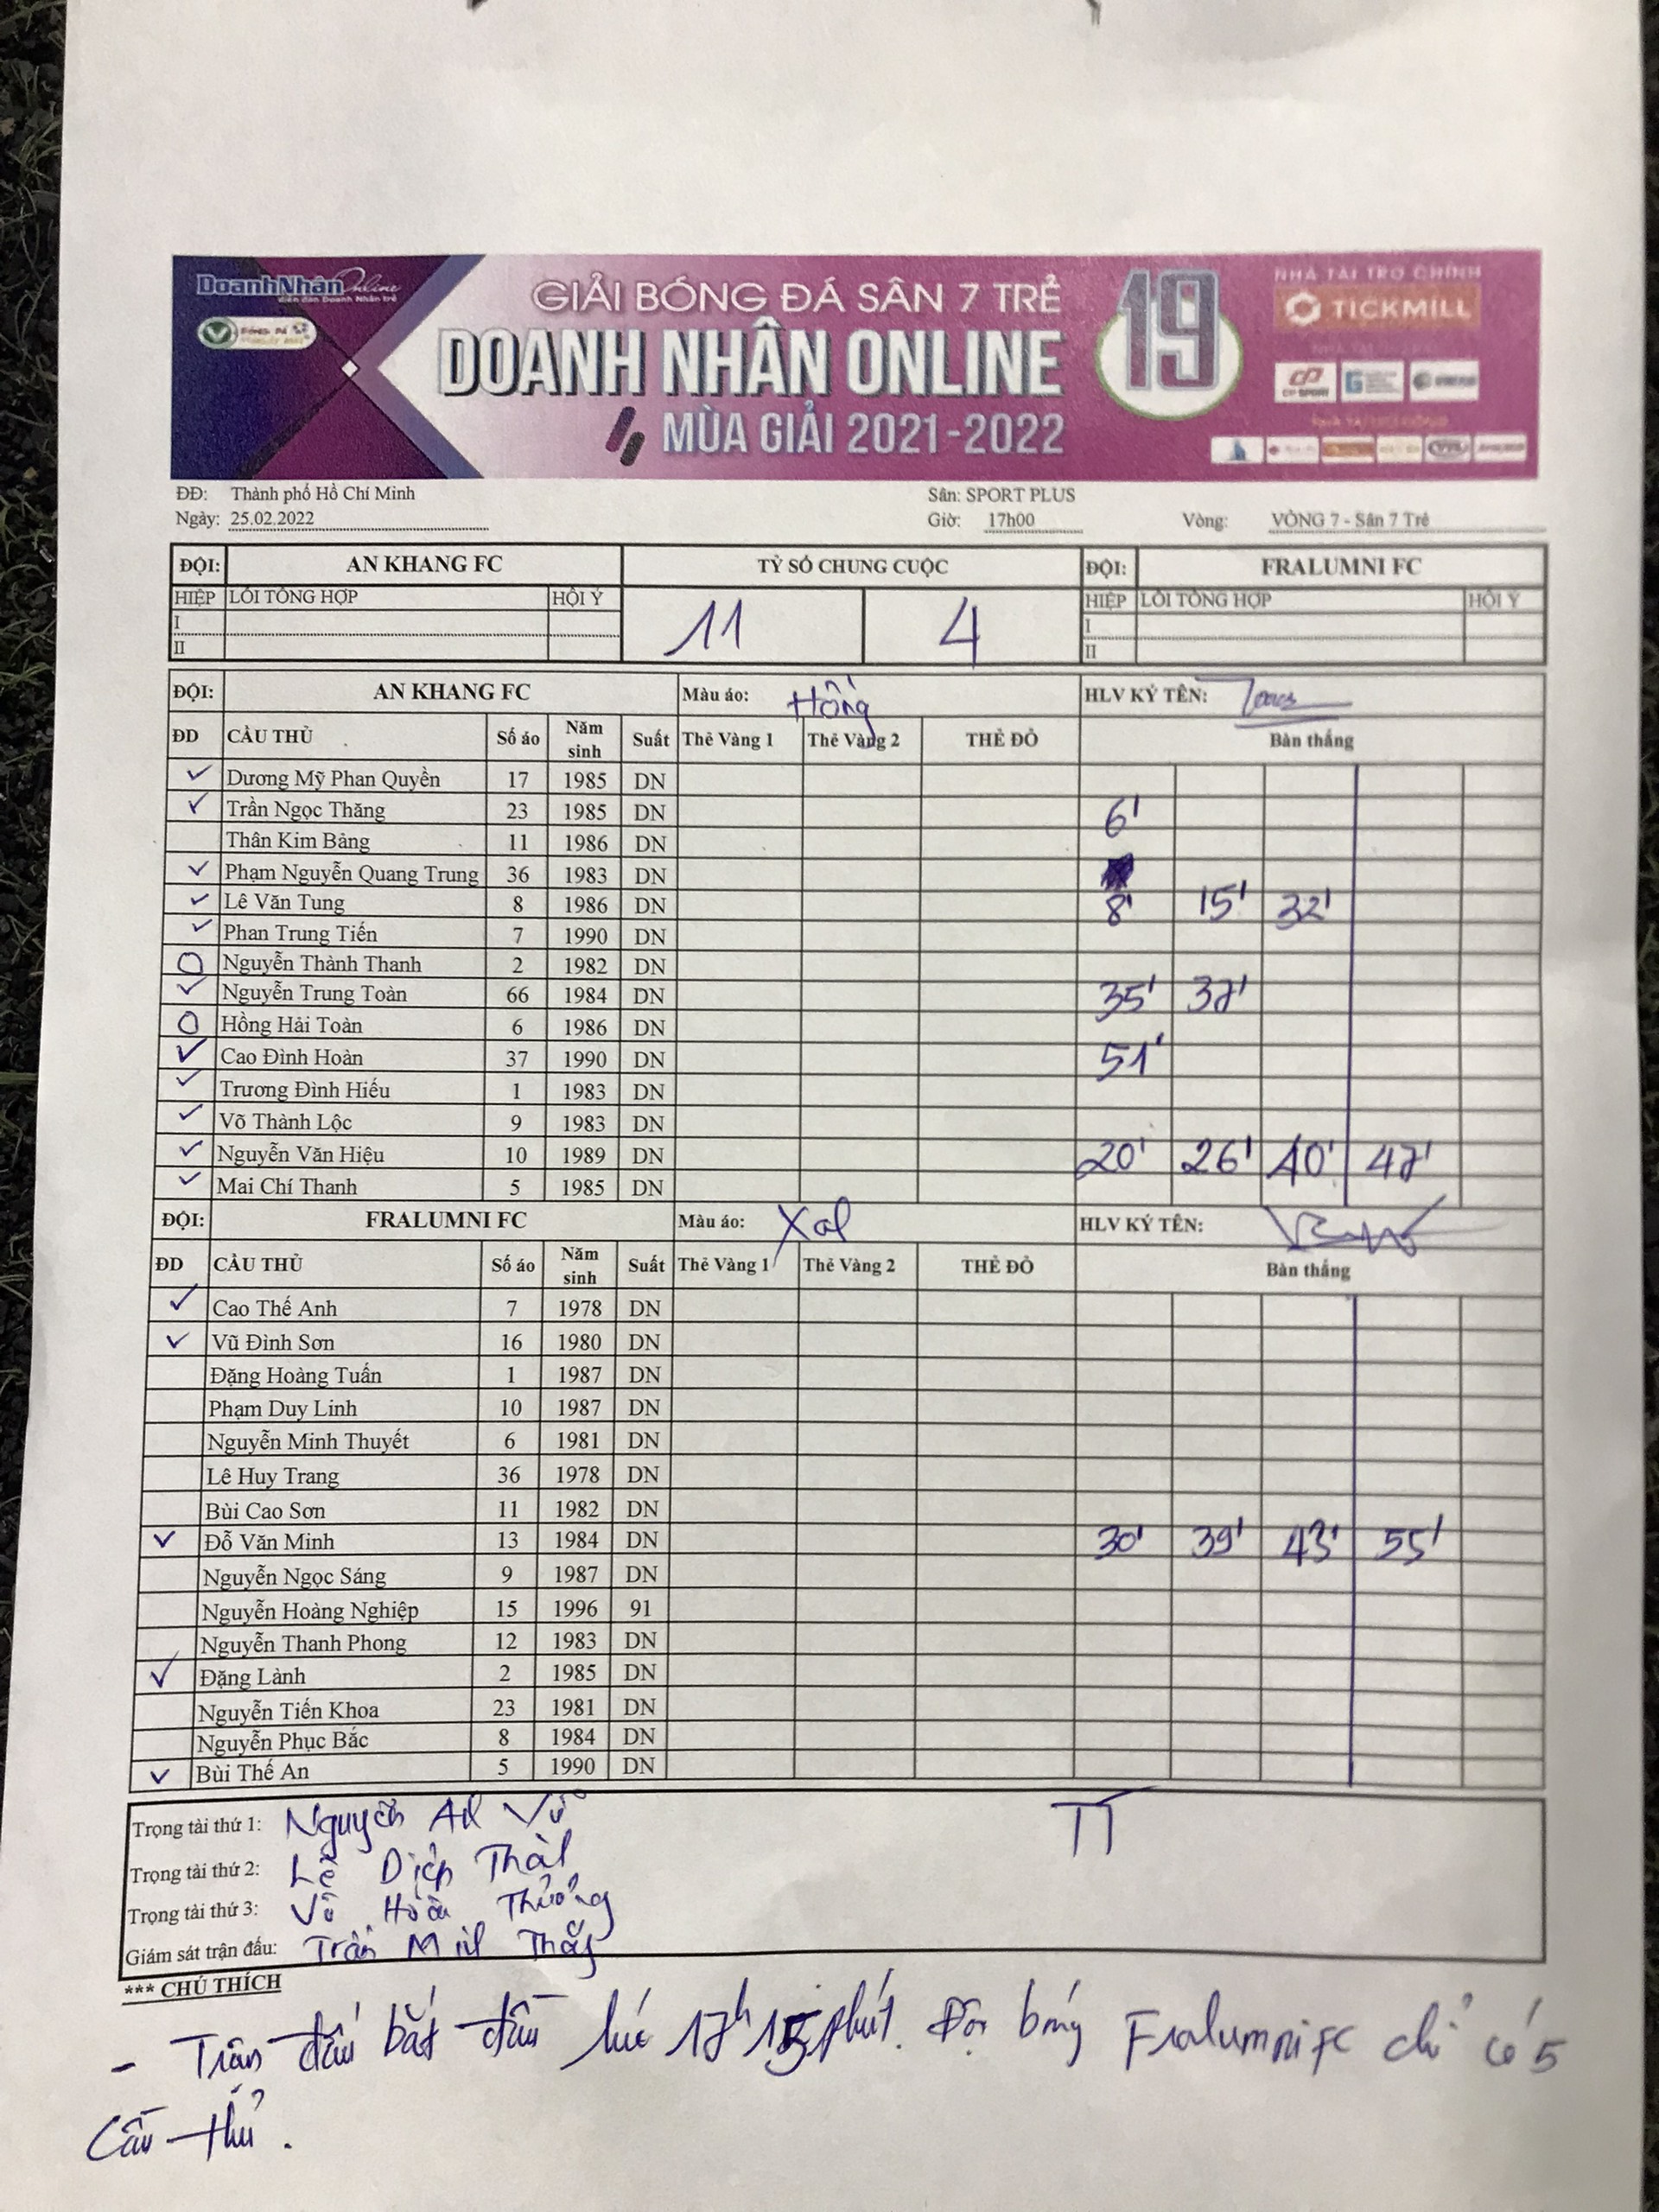 DoanhNhân Online
diễn đàn Doanh Nhân trẻ
GIẢI BÓNG ĐÁ SÂN 7 TRẺ
DOANH NHÂN ONLINE
MÙA GIẢI 2021-2022
19
NHÀ TÀI TRỢ CHÍNH
TICKMILL
ĐĐ: Thành phố Hồ Chí Minh Sân: SPORT PLUS
Ngày: 25.02.2022 Giờ: 17h00 Vòng: VÒNG 7 - Sân 7 Trẻ
ĐỘI: AN KHANG FC TỶ SỐ CHUNG CUỘC ĐỘI: FRALUMNI FC
HIỆP LỖI TỔNG HỢP HỘI Ý 11 4 HIỆP LỖI TỔNG HỢP HỘI Ý
I I
II II
ĐỘI: AN KHANG FC Màu áo: Hồng HLV KÝ TÊN:
ĐD CẦU THỦ Số áo Năm sinh Suất Thẻ Vàng 1 Thẻ Vàng 2 THẺ ĐỎ Bàn thắng
✓ Dương Mỹ Phan Quyền 17 1985 DN
✓ Trần Ngọc Thăng 23 1985 DN 6'
Thân Kim Bảng 11 1986 DN
✓ Phạm Nguyễn Quang Trung 36 1983 DN
✓ Lê Văn Tung 8 1986 DN 8' 15' 32'
✓ Phan Trung Tiến 7 1990 DN
O Nguyễn Thành Thanh 2 1982 DN
✓ Nguyễn Trung Toàn 66 1984 DN 35' 37'
O Hồng Hải Toàn 6 1986 DN
✓ Cao Đình Hoàn 37 1990 DN 51'
✓ Trương Đình Hiếu 1 1983 DN
✓ Võ Thành Lộc 9 1983 DN
✓ Nguyễn Văn Hiệu 10 1989 DN 20' 26' 40' 47'
✓ Mai Chí Thanh 5 1985 DN
ĐỘI: FRALUMNI FC Màu áo: Xal HLV KÝ TÊN:
ĐD CẦU THỦ Số áo Năm sinh Suất Thẻ Vàng 1 Thẻ Vàng 2 THẺ ĐỎ Bàn thắng
✓ Cao Thế Anh 7 1978 DN
✓ Vũ Đình Sơn 16 1980 DN
Đặng Hoàng Tuấn 1 1987 DN
Phạm Duy Linh 10 1987 DN
Nguyễn Minh Thuyết 6 1981 DN
Lê Huy Trang 36 1978 DN
Bùi Cao Sơn 11 1982 DN
✓ Đỗ Văn Minh 13 1984 DN 30' 39' 43' 55'
Nguyễn Ngọc Sáng 9 1987 DN
Nguyễn Hoàng Nghiệp 15 1996 91
Nguyễn Thanh Phong 12 1983 DN
✓ Đặng Lành 2 1985 DN
Nguyễn Tiến Khoa 23 1981 DN
Nguyễn Phục Bắc 8 1984 DN
✓ Bùi Thế An 5 1990 DN
Trọng tài thứ 1: Nguyễn Anh Vũ TT
Trọng tài thứ 2: Lê Diệp Thành
Trọng tài thứ 3: Vũ Hoàn Thưởng
Giám sát trận đấu: Trần Minh Thắng
*** CHÚ THÍCH
- Trận đấu bắt đầu lúc 17h 15 phút. Đội bóng Fralumni FC chỉ có 5
Cầu thủ.